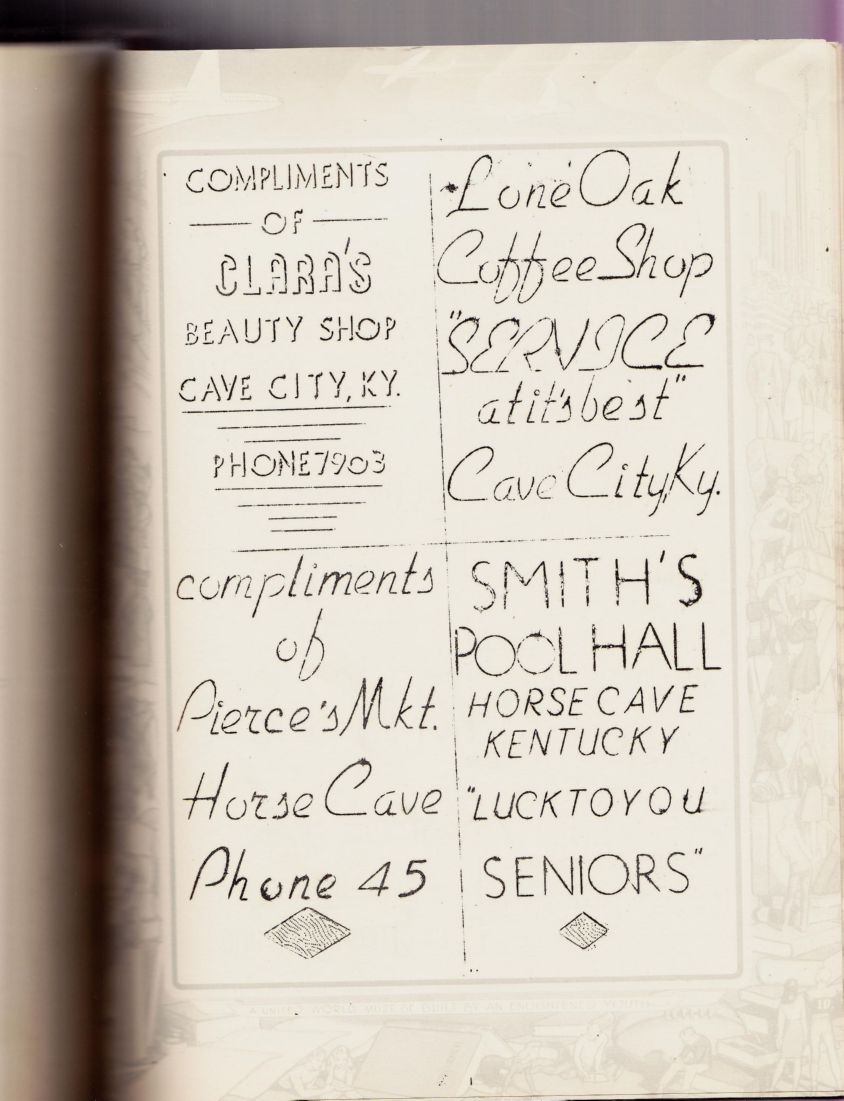 COMPLIMENTS
OF
CLARA'S
BEAUTY SHOP
CAVE CITY, KY.
PHONE 7903
Lone Oak
Coffee Shop
"SERVICE
at it's best"
Cave City, Ky.
compliments
of
Pierce's Mkt.
Horse Cave
Phone 45
SMITH'S
POOL HALL
HORSE CAVE
KENTUCKY
"LUCK TO YOU
SENIORS"
A UNITED WORLD MUST BE BUILT BY AN ENLIGHTENED YOUTH